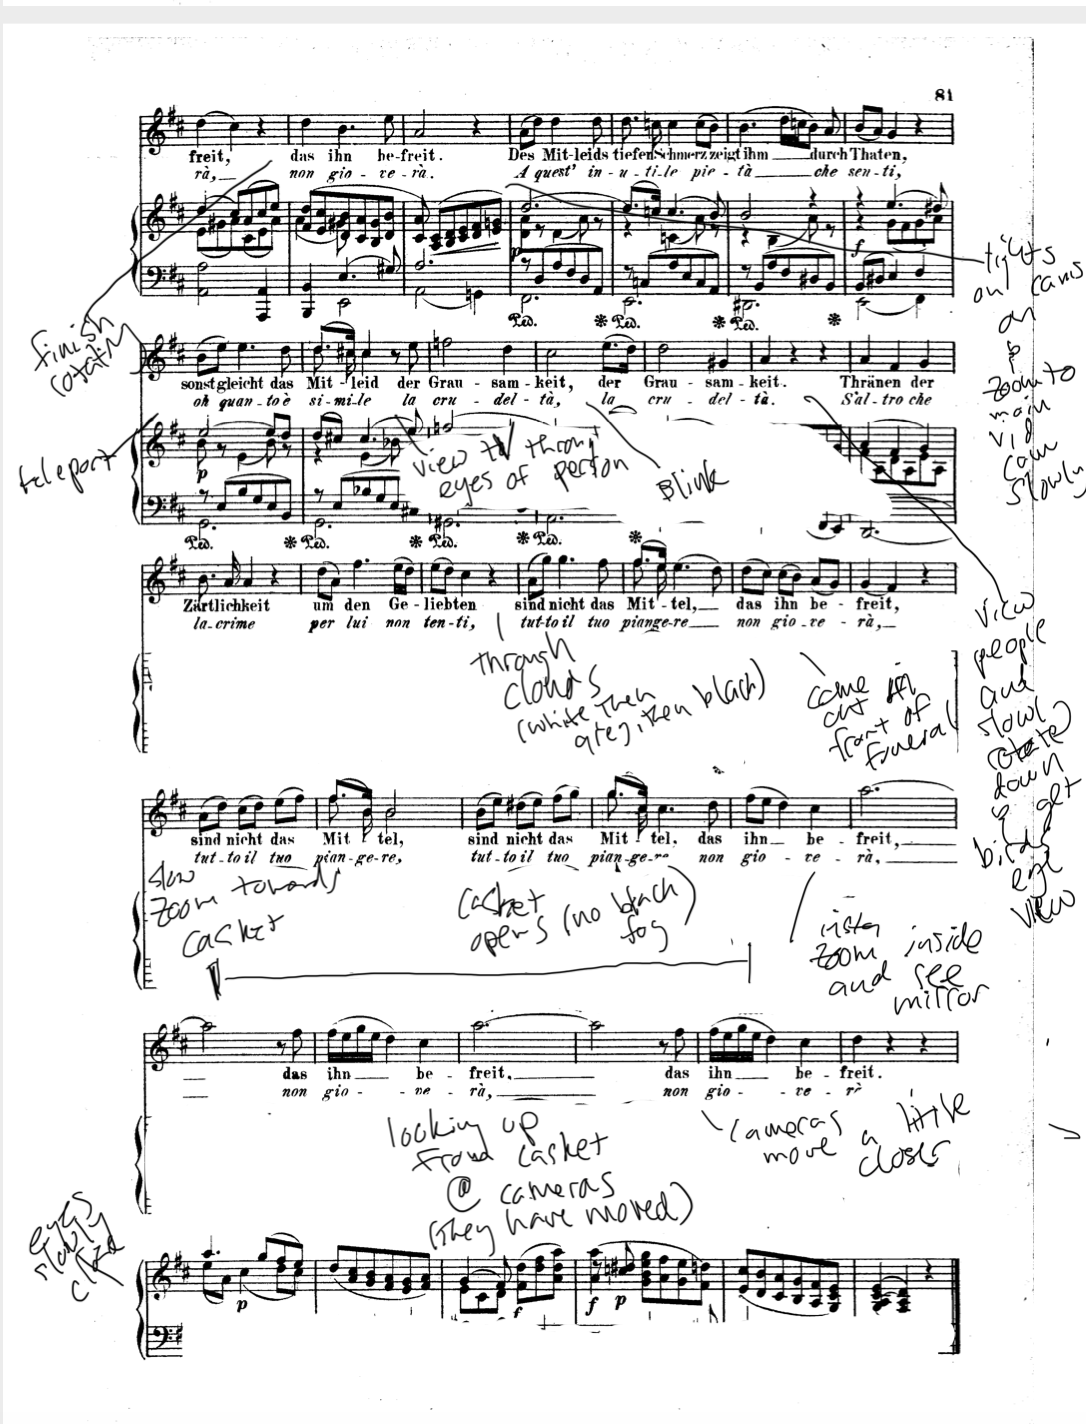 81
freit, das ihn be-freit. Des Mit-leids tiefen Schmerz zeigt ihm durch Thaten,
rà, non gio-ve-rà. A quest' in-u-ti-le pie-tà che sen-ti,
p
f
Ped. * Ped. * Ped. *
lights
on cams
on
&
zoom to
main
vid
cam
slowly
finish
rotating
teleport
sonst gleicht das Mit-leid der Grau-sam-keit, der Grau-sam-keit. Thränen der
oh quan-to è si-mi-le la cru-del-tà, la cru-del-tà. S'al-tro che
p
view through
eyes of person
Blink
Ped. * Ped. * Ped. * Ped. *
Zärtlichkeit um den Ge-liebten sind nicht das Mit-tel, das ihn be-freit,
la-crime per lui non ten-ti, tut-to il tuo piange-re non gio-ve-rà,
through
clouds
(white then
grey, then black)
come
out in
front of
funeral
view
people
and
slowly
rotate
down
&
get
birds
eye
view
sind nicht das Mit-tel, sind nicht das Mit-tel, das ihn be-freit,
tut-to il tuo pian-ge-re, tut-to il tuo pian-ge-re non gio-ve-rà,
slow
zoom towards
casket
casket
opens (no black
fog)
insta
zoom inside
and see
mirror
das ihn be-freit, das ihn be-freit.
non gio-ve-rà, non gio-ve-rà
looking up
from casket
@ cameras
(they have moved)
cameras
move a little
closer
eyes
slowly
close
p
f
f p